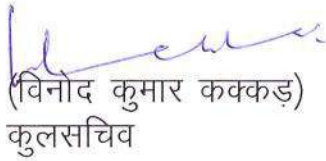 (विनोद कुमार कक्कड़)
कुलसचिव